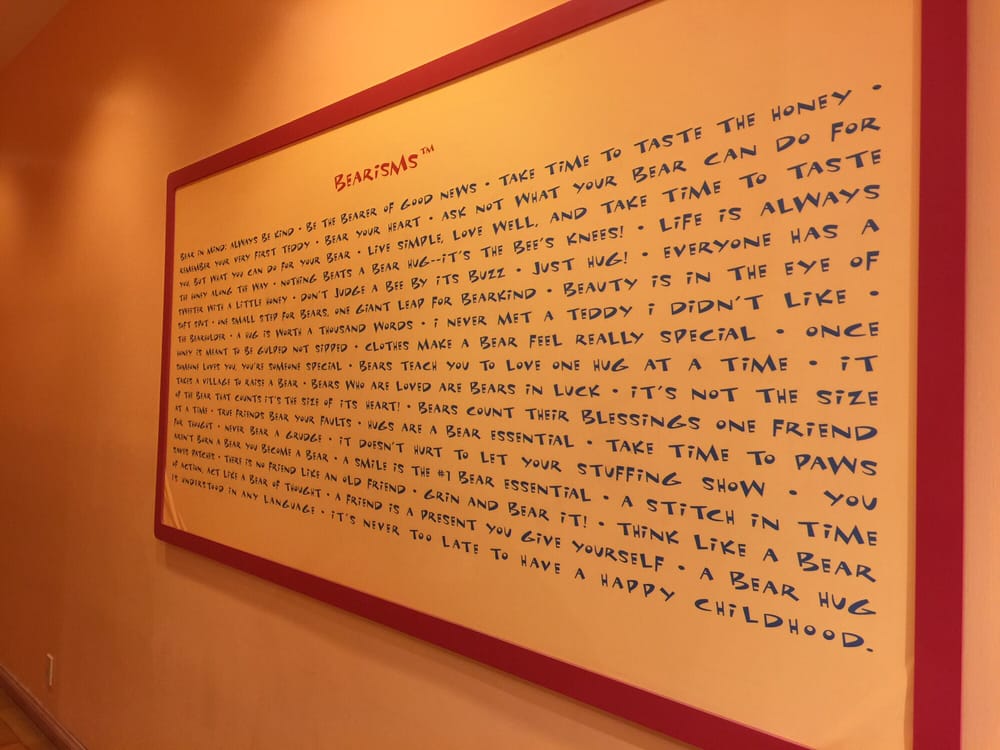 BEARISMS™
BEAR IN MIND: ALWAYS BE KIND • BE THE BEARER OF GOOD NEWS • TAKE TIME TO TASTE THE HONEY •
REMEMBER YOUR VERY FIRST TEDDY • BEAR YOUR HEART • ASK NOT WHAT YOUR BEAR CAN DO FOR
YOU, BUT WHAT YOU CAN DO FOR YOUR BEAR • LIVE SIMPLE, LOVE WELL, AND TAKE TIME TO TASTE
THE HONEY ALONG THE WAY • NOTHING BEATS A BEAR HUG--IT'S THE BEE'S KNEES! • LIFE IS ALWAYS
SWEETER WITH A LITTLE HONEY • DON'T JUDGE A BEE BY ITS BUZZ • JUST HUG! • EVERYONE HAS A
SOFT SPOT • ONE SMALL STEP FOR BEARS, ONE GIANT LEAP FOR BEARKIND • BEAUTY IS IN THE EYE OF
THE BEARHOLDER • A HUG IS WORTH A THOUSAND WORDS • I NEVER MET A TEDDY I DIDN'T LIKE •
HONEY IS MEANT TO BE GULPED NOT SIPPED • CLOTHES MAKE A BEAR FEEL REALLY SPECIAL • ONCE
SOMEONE LOVES YOU, YOU'RE SOMEONE SPECIAL • BEARS TEACH YOU TO LOVE ONE HUG AT A TIME • IT
TAKES A VILLAGE TO RAISE A BEAR • BEARS WHO ARE LOVED ARE BEARS IN LUCK • IT'S NOT THE SIZE
OF THE BEAR THAT COUNTS IT'S THE SIZE OF ITS HEART! • BEARS COUNT THEIR BLESSINGS ONE FRIEND
AT A TIME • TRUE FRIENDS BEAR YOUR FAULTS • HUGS ARE A BEAR ESSENTIAL • TAKE TIME TO PAWS
FOR THOUGHT • NEVER BEAR A GRUDGE • IT DOESN'T HURT TO LET YOUR STUFFING SHOW • YOU
AREN'T BORN A BEAR YOU BECOME A BEAR • A SMILE IS THE #1 BEAR ESSENTIAL • A STITCH IN TIME
SAVES PATCHES • THERE IS NO FRIEND LIKE AN OLD FRIEND • GRIN AND BEAR IT! • THINK LIKE A BEAR
OF ACTION, ACT LIKE A BEAR OF THOUGHT • A FRIEND IS A PRESENT YOU GIVE YOURSELF • A BEAR HUG
IS UNDERSTOOD IN ANY LANGUAGE • IT'S NEVER TOO LATE TO HAVE A HAPPY CHILDHOOD.